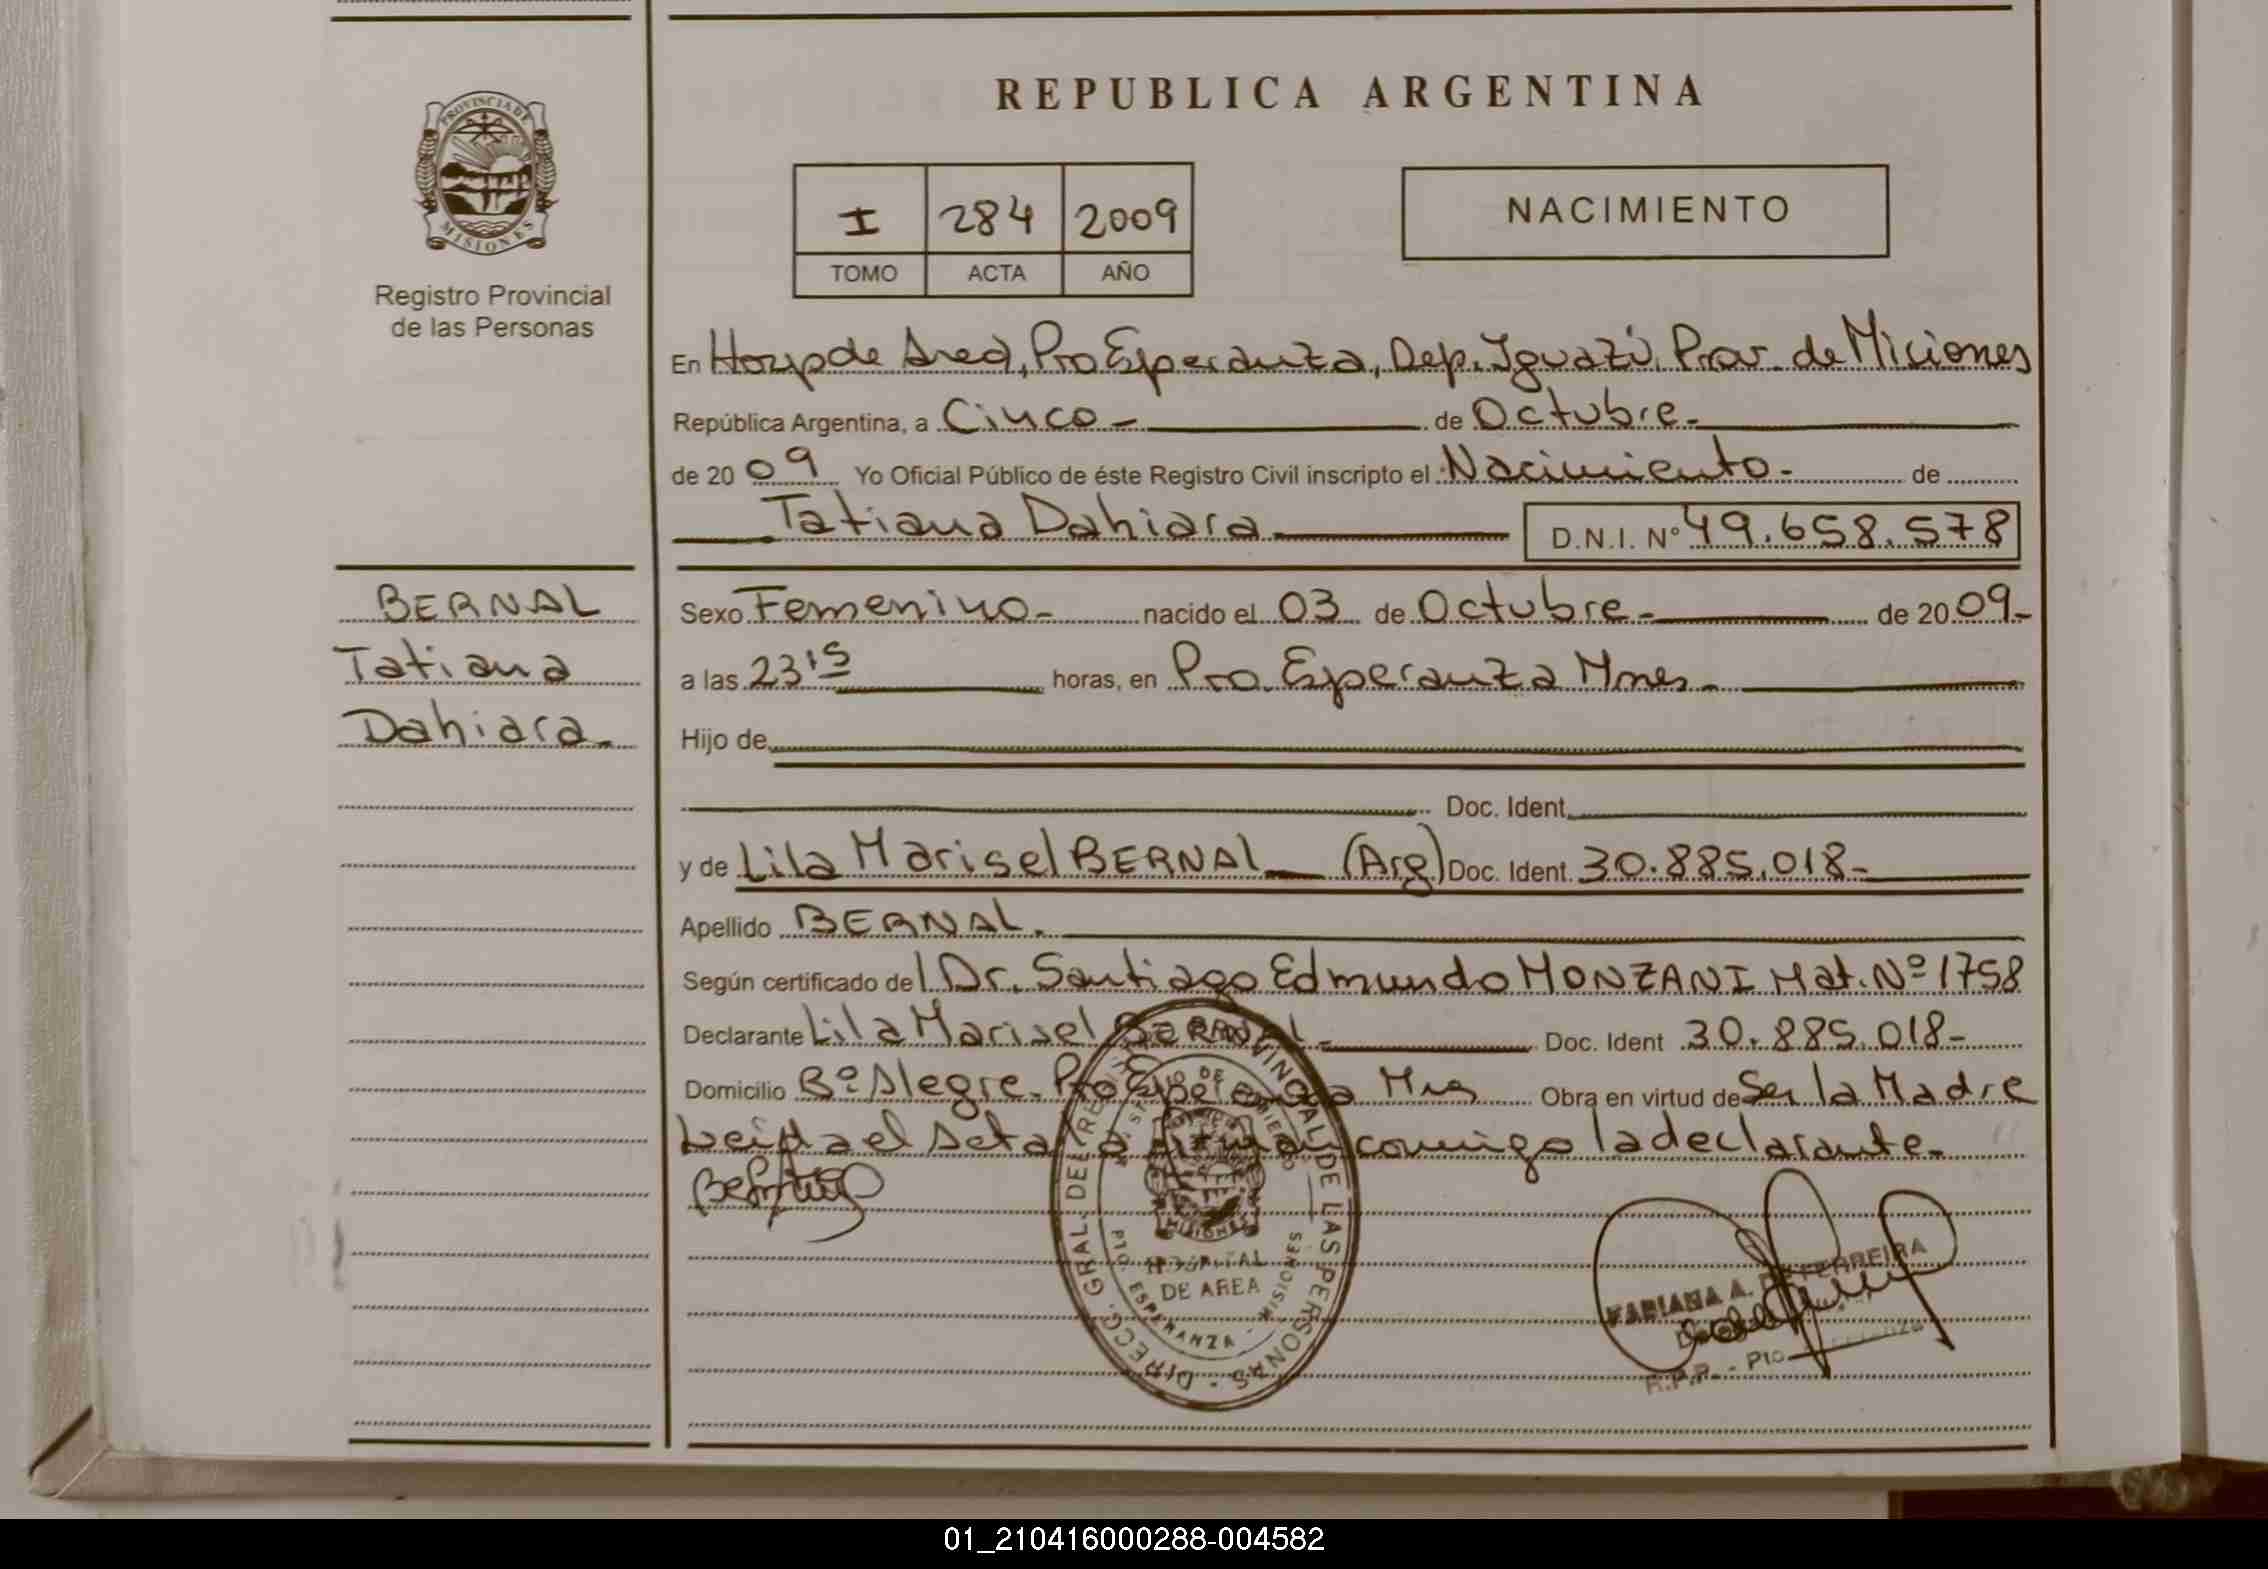 PROVINCIA DE
MISIONES
Registro Provincial
de las Personas
REPUBLICA ARGENTINA
I 284 2009
TOMO ACTA AÑO
NACIMIENTO
En Hosp de Area, Pto Esperanza, Dep. Iguazú, Prov. de Misiones
República Argentina, a Cinco - de Octubre -
de 20 09 Yo Oficial Público de éste Registro Civil inscripto el Nacimiento - de
Tatiana Dahiara - D.N.I. Nº 49.658.578
BERNAL
Tatiana
Dahiara -
Sexo Femenino - nacido el 03 de Octubre - de 20 09 -
a las 23 15 horas, en Pto. Esperanza Mnes -
Hijo de
Doc. Ident.
y de Lila Marisel BERNAL - (Arg) Doc. Ident. 30.885.018 -
Apellido BERNAL.
Según certificado del Dr. Santiago Edmundo MONZANI Mat. Nº 1758
Declarante Lila Marisel BERNAL - Doc. Ident 30.885.018 -
Domicilio Bº Alegre - Pto Esperanza Mns Obra en virtud de Ser la Madre
Leida el Acta la firman conmigo la declarante -
DIRECC. GRAL. DEL REG. PROVINCIAL DE LAS PERSONAS
MISIONES
HOSPITAL
DE AREA
PTO. ESPERANZA - MISIONES
FABIANA A. FERREIRA
R.P.P. - Pto
01_210416000288-004582